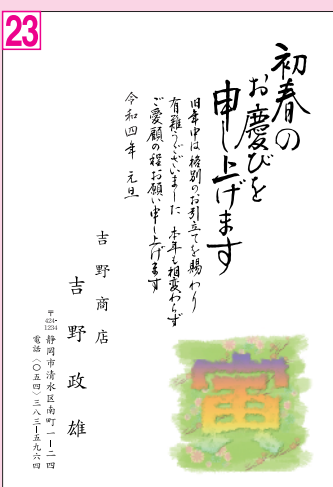 23
初春の
お慶びを
申し上げます
旧年中は格別のお引立てを賜わり
有難うございました 本年も相変わらず
ご愛顧の程お願い申し上げます
令和四年 元旦
吉野商店
吉野政雄
〒424-1234
静岡市清水区南町一ー二四
電話〈〇五四〉三八三ー五九六四
寅